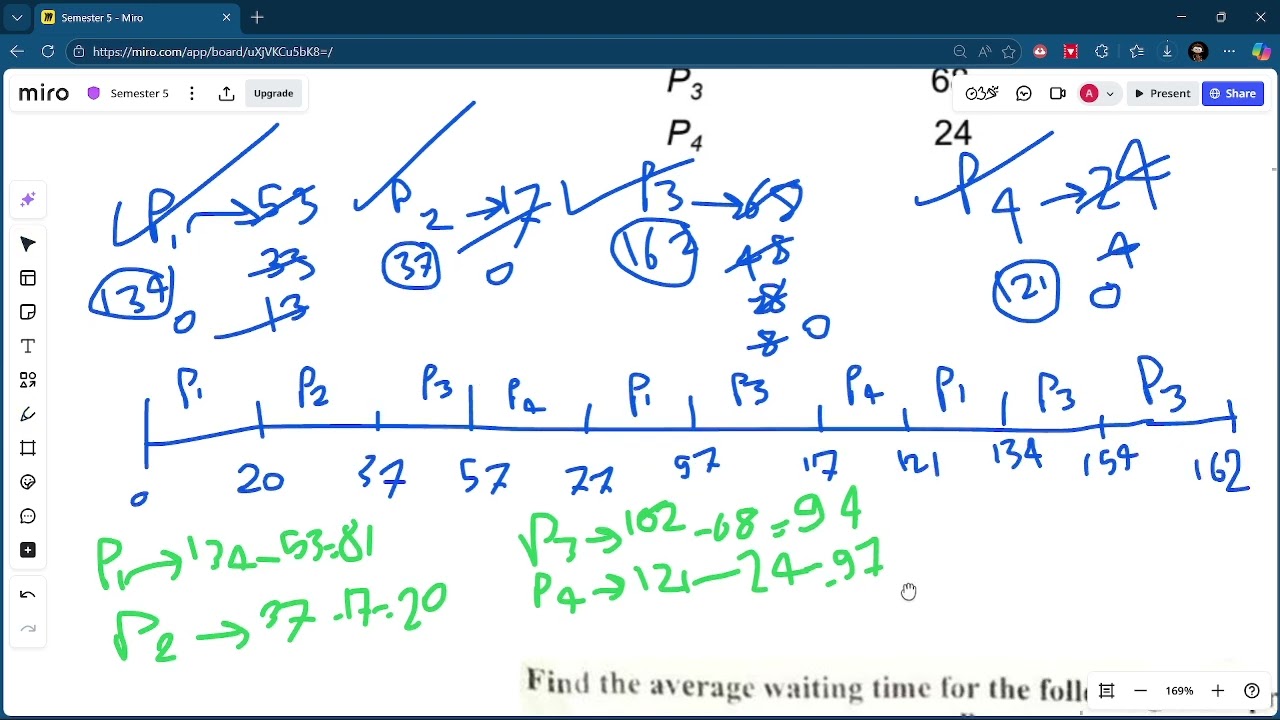 Semester 5 - Miro
https://miro.com/app/board/uXjVKCu5bK8=/
miro Semester 5 Upgrade
A Present Share
P3 68
P4 24
P1 → 53 P2 → 17 P3 → 68 P4 → 24
134 33 37 0 162 48 121 4
0 13 28 0
8 0
P1 P2 P3 P4 P1 P3 P4 P1 P3 P3
0 20 37 57 77 97 117 121 134 154 162
P1 → 134 - 53 = 81 P3 → 162 - 68 = 94
P2 → 37 - 17 = 20 P4 → 121 - 24 = 97
Find the average waiting time for the foll
169%